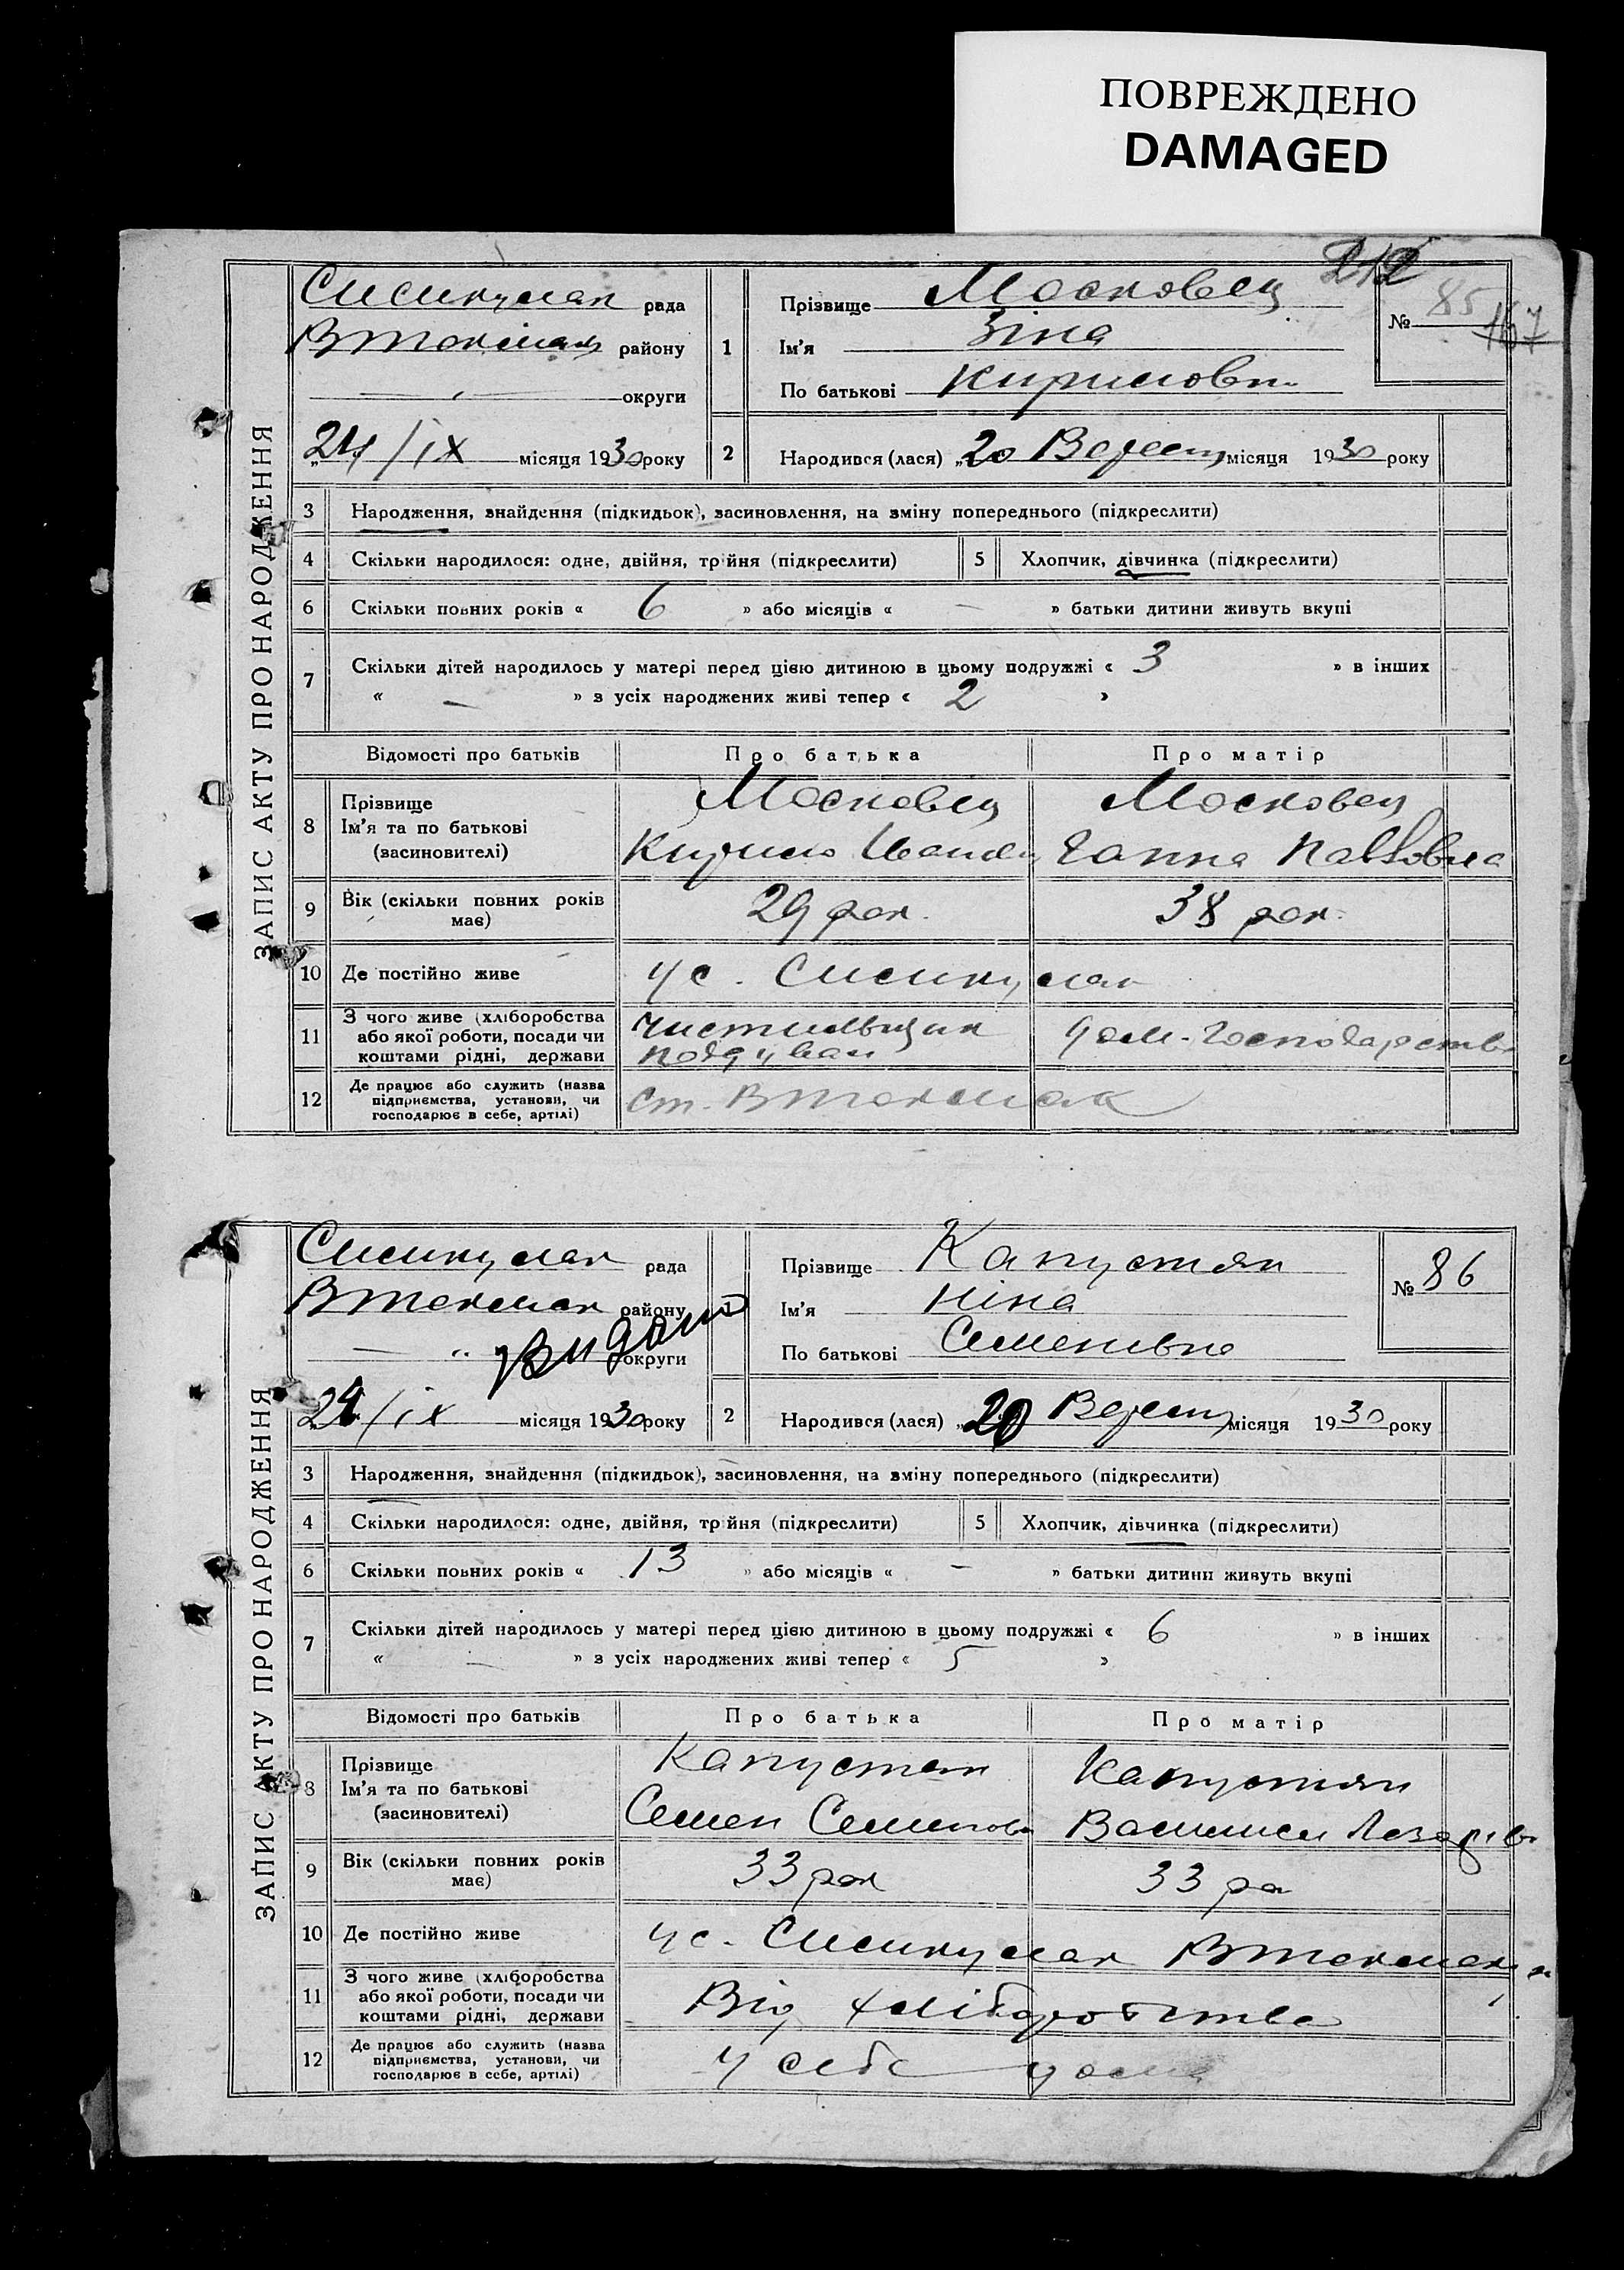 ПОВРЕЖДЕНО
DAMAGED
212
ЗАПИС АКТУ ПРО НАРОДЖЕННЯ
рада
району
округи
24/ІХ місяця 1930 року
1
Прізвище Московец
Ім'я Зіна
По батькові
№ 85
167
2 Народився (лася) „20 Верес місяця 1930 року
3 Народження, знайдення (підкидьок), засиновлення, на зміну попереднього (підкреслити)
4 Скільки народилося: одне, двійня, трійня (підкреслити) 5 Хлопчик, дівчинка (підкреслити)
6 Скільки повних років « 6 » або місяців « – » батьки дитини живуть вкупі
7 Скільки дітей народилось у матері перед цією дитиною в цьому подружжі « 3 » в інших
« – » з усіх народжених живі тепер « 2 »
Відомості про батьків Про батька Про матір
8 Прізвище Московец Московец
Ім'я та по батькові Кирило Ганна Павловна
(засиновителі)
9 Вік (скільки повних років має) 29 рок. 38 рок.
10 Де постійно живе у с.
11 З чого живе (хліборобства або якої роботи, посади чи коштами рідні, держави дом. господарств
12 Де працює або служить (назва підприємства, установи, чи господарює в себе, артілі) ст. Втокмак
ЗАПИС АКТУ ПРО НАРОДЖЕННЯ
рада
Втокмак району
округи
Видано
24/іх місяця 1930 року
1
Прізвище Капустян
Ім'я Ніна
По батькові Семенівна
№ 86
2 Народився (лася) „20 Верес місяця 1930 року
3 Народження, знайдення (підкидьок), засиновлення, на зміну попереднього (підкреслити)
4 Скільки народилося: одне, двійня, трійня (підкреслити) 5 Хлопчик, дівчинка (підкреслити)
6 Скільки повних років « 13 » або місяців « – » батьки дитини живуть вкупі
7 Скільки дітей народилось у матері перед цією дитиною в цьому подружжі « 6 » в інших
« – » з усіх народжених живі тепер « 5 »
Відомості про батьків Про батька Про матір
8 Прізвище Капустян Капустян
Ім'я та по батькові Семен Семенов Василиса Лазарів
(засиновителі)
9 Вік (скільки повних років має) 33 рок 33 ро
10 Де постійно живе у с. Втокмак
11 З чого живе (хліборобства або якої роботи, посади чи коштами рідні, держави Від хліборобства
12 Де працює або служить (назва підприємства, установи, чи господарює в себе, артілі) у себе дома